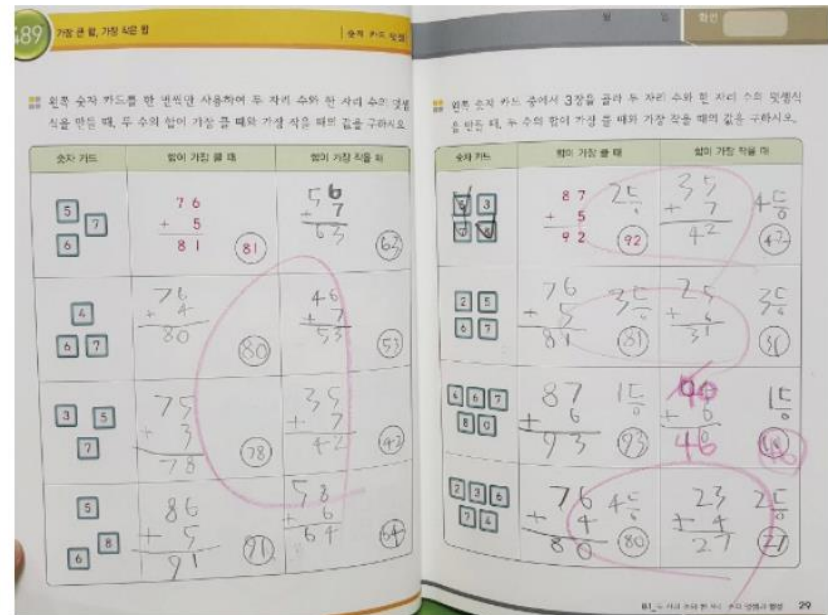 489
가장 큰 합, 가장 작은 합
숫자 카드 덧셈
왼쪽 숫자 카드를 한 번씩만 사용하여 두 자리 수와 한 자리 수의 덧셈
식을 만들 때, 두 수의 합이 가장 클 때와 가장 작을 때의 값을 구하시오.
숫자 카드 합이 가장 클 때 합이 가장 작을 때
5 7 6
76
+ 5
81
81
56
+ 7
63
63
4 6 7
76
+ 4
80
80
46
+ 7
53
53
3 5 7
75
+ 3
78
78
35
+ 7
42
42
5 8 6
86
+ 5
91
91
58
+ 6
64
64
월 일 확인
왼쪽 숫자 카드 중에서 3장을 골라 두 자리 수와 한 자리 수의 덧셈식
을 만들 때, 두 수의 합이 가장 클 때와 가장 작을 때의 값을 구하시오.
숫자 카드 합이 가장 클 때 합이 가장 작을 때
3
87
+ 5
92
92
35
+ 7
42
42
2 5
6 7
76
+ 5
81
81
25
+ 6
31
31
4 6 7
8 0
87
+ 6
93
93
40
+ 6
46
46
2 3 6
7 4
76
+ 4
80
80
23
+ 4
27
27
29